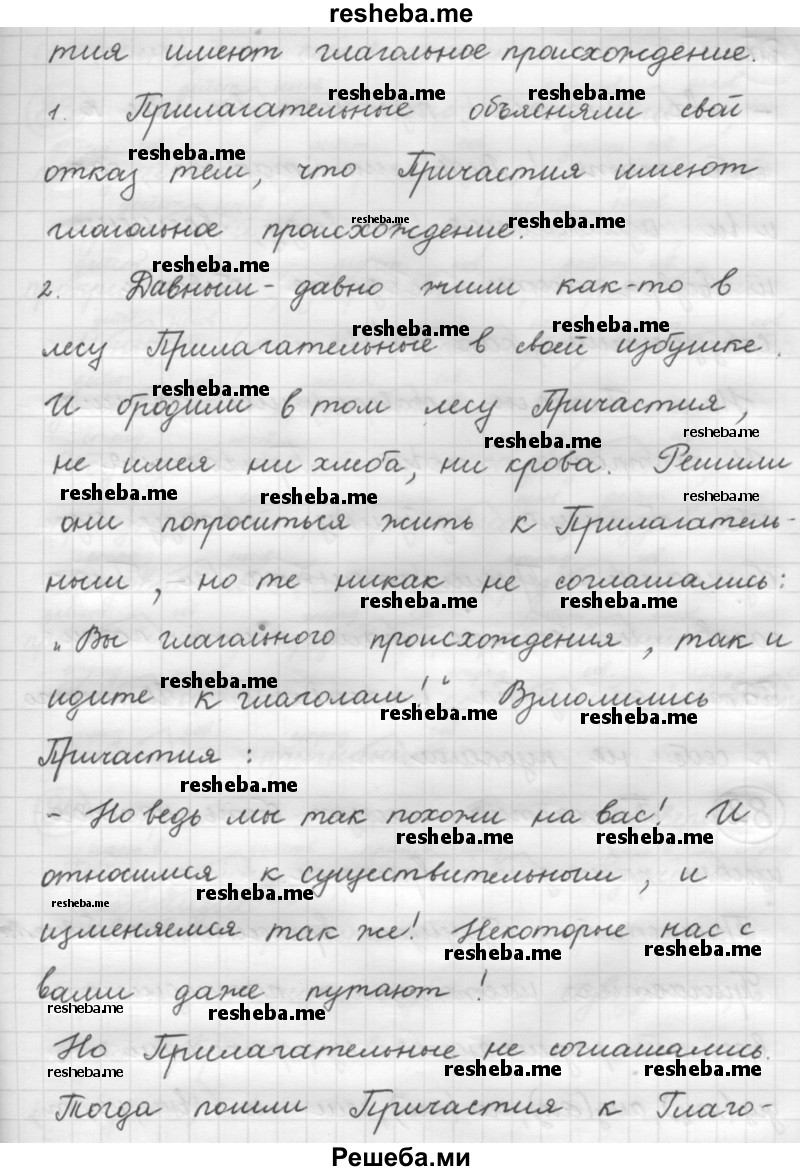 resheba.me
тия имеют глагольное происхождение.
resheba.me resheba.me
1. Прилагательные объясняли свой
resheba.me
отказ тем, что Причастия имеют
resheba.me resheba.me
глагольное происхождение.
resheba.me
2. Давным-давно жили как-то в
resheba.me resheba.me
лесу Прилагательные в своей избушке.
resheba.me
И бродили в том лесу Причастия,
resheba.me resheba.me
не имея ни хлеба, ни крова. Решили
resheba.me resheba.me resheba.me
они попроситься жить к Прилагатель-
ным, но те никак не соглашались:
resheba.me resheba.me
„Вы глагольного происхождения, так и
resheba.me
идите к глаголам!“ Взмолились
resheba.me resheba.me
Причастия:
resheba.me
- Но ведь мы так похожи на вас! И
resheba.me resheba.me
относимся к существительным, и
resheba.me resheba.me
изменяемся так же! Некоторые нас с
resheba.me resheba.me
вами даже путают!
resheba.me resheba.me
Но Прилагательные не соглашались.
resheba.me resheba.me resheba.me
Тогда пошли Причастия к Глаго-
Решеба.ми